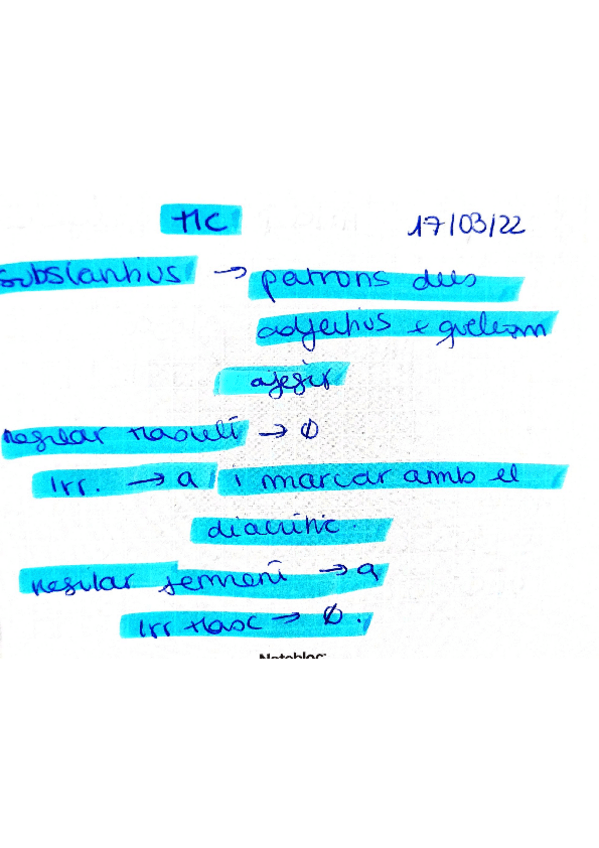 TIC 17/03/22
substantius → patrons dels
adjectius e
afegir
Regular Masculí → Ø
Irr. → a i marcar amb el
diacrític.
Regular femení → a
Irr Masc → Ø.
Notebloc